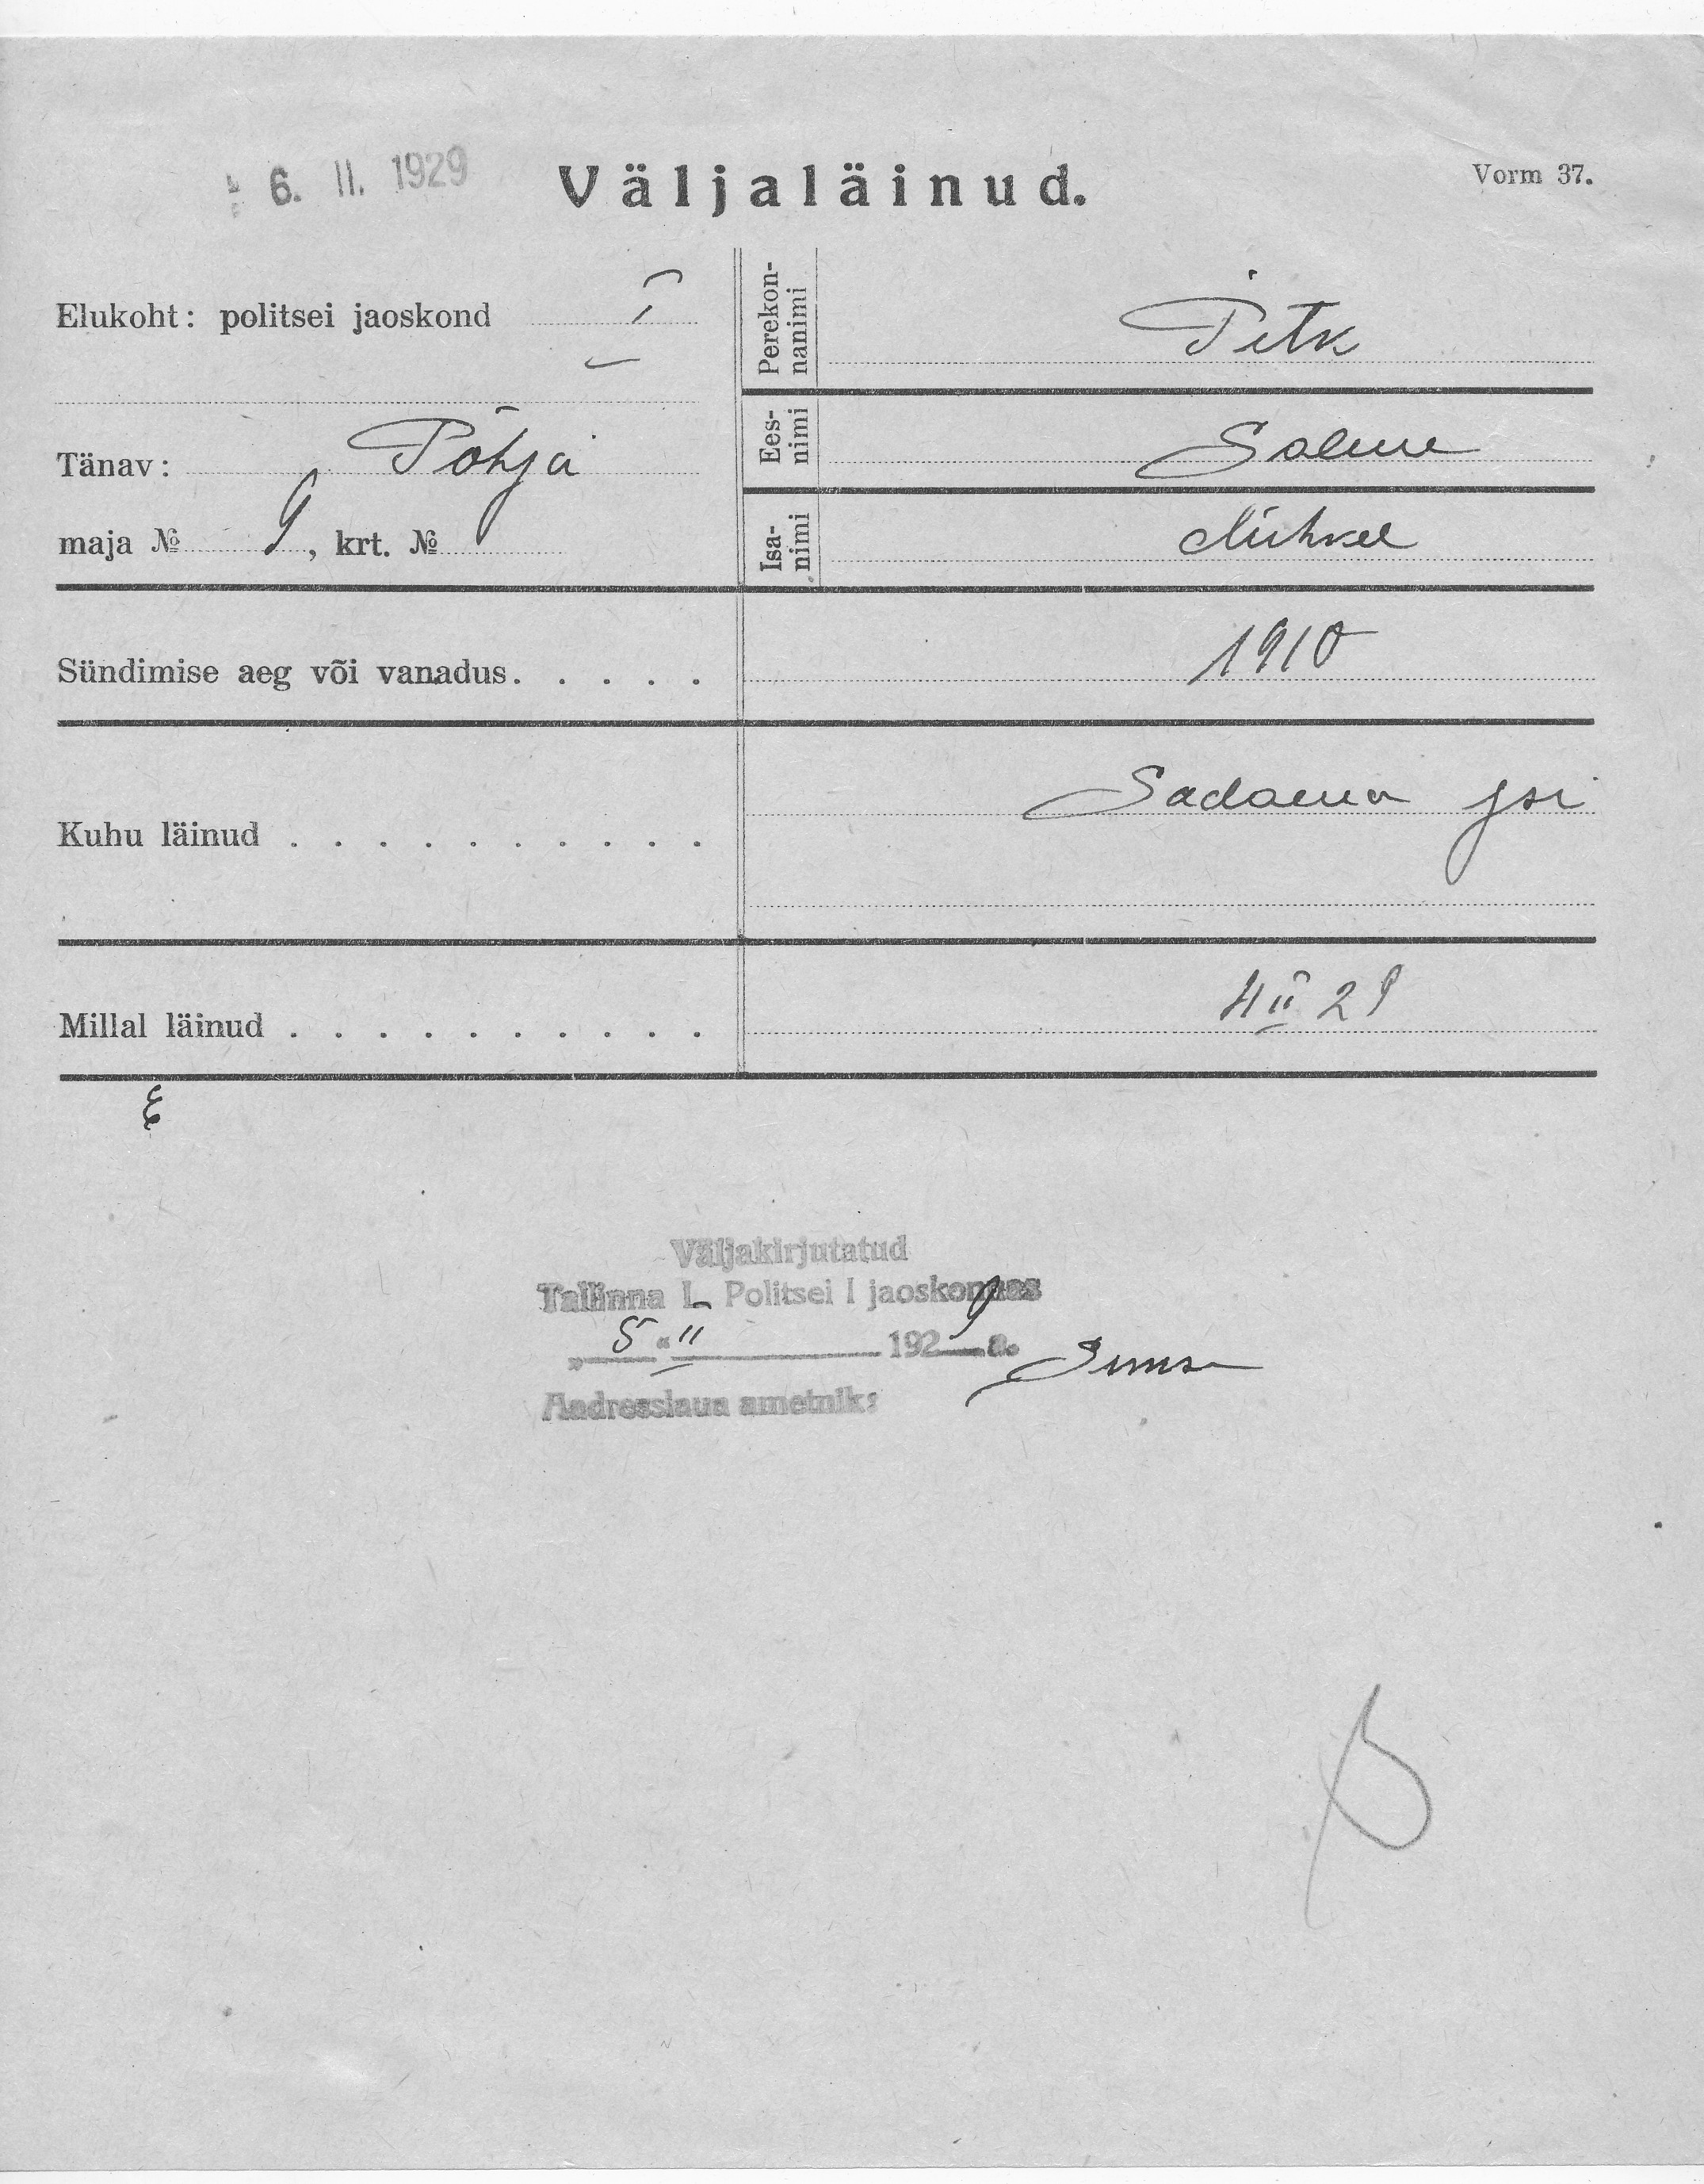 6. II. 1929
Väljaläinud.
Vorm 37.
Elukoht: politsei jaoskond I
Tänav: Põhja
maja № 9, krt. №
Perekon-
nanimi
Pitk
Ees-
nimi
Salme
Isa-
nimi
Mihkel
Sündimise aeg või vanadus. . . . . 1910
Kuhu läinud . . . . . . . . . . Sadama
Millal läinud . . . . . . . . . . 4 II 29
Väljakirjutatud
Tallinna L. Politsei I jaoskonnas
„ 5 “ II 1929 a.
Aadresslaua ametnik: